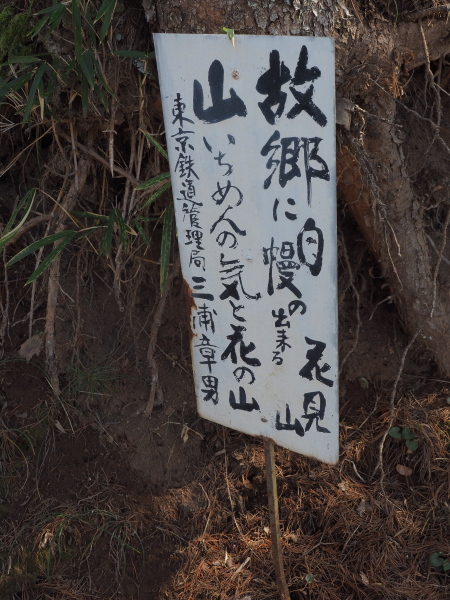 故郷に自慢の出来る花見山
山いちめんの気と花の山
東京鉄道管理局 三浦章男